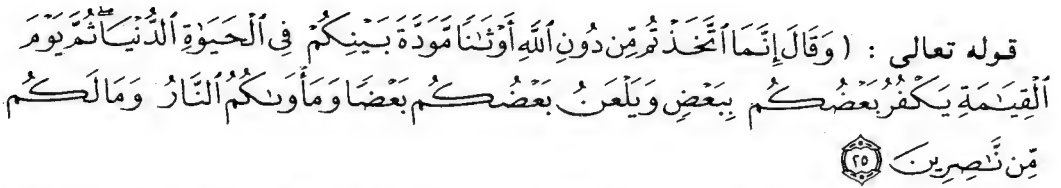 قوله تعالى : ﴿ وَقَالَ إِنَّمَا ٱتَّخَذْتُم مِّن دُونِ ٱللَّهِ أَوْثَٰنًا مَّوَدَّةَ بَيْنِكُمْ فِى ٱلْحَيَوٰةِ ٱلدُّنْيَا ۖ ثُمَّ يَوْمَ
ٱلْقِيَٰمَةِ يَكْفُرُ بَعْضُكُم بِبَعْضٍ وَيَلْعَنُ بَعْضُكُم بَعْضًا وَمَأْوَىٰكُمُ ٱلنَّارُ وَمَا لَكُم
مِّن نَّٰصِرِينَ ٢٥